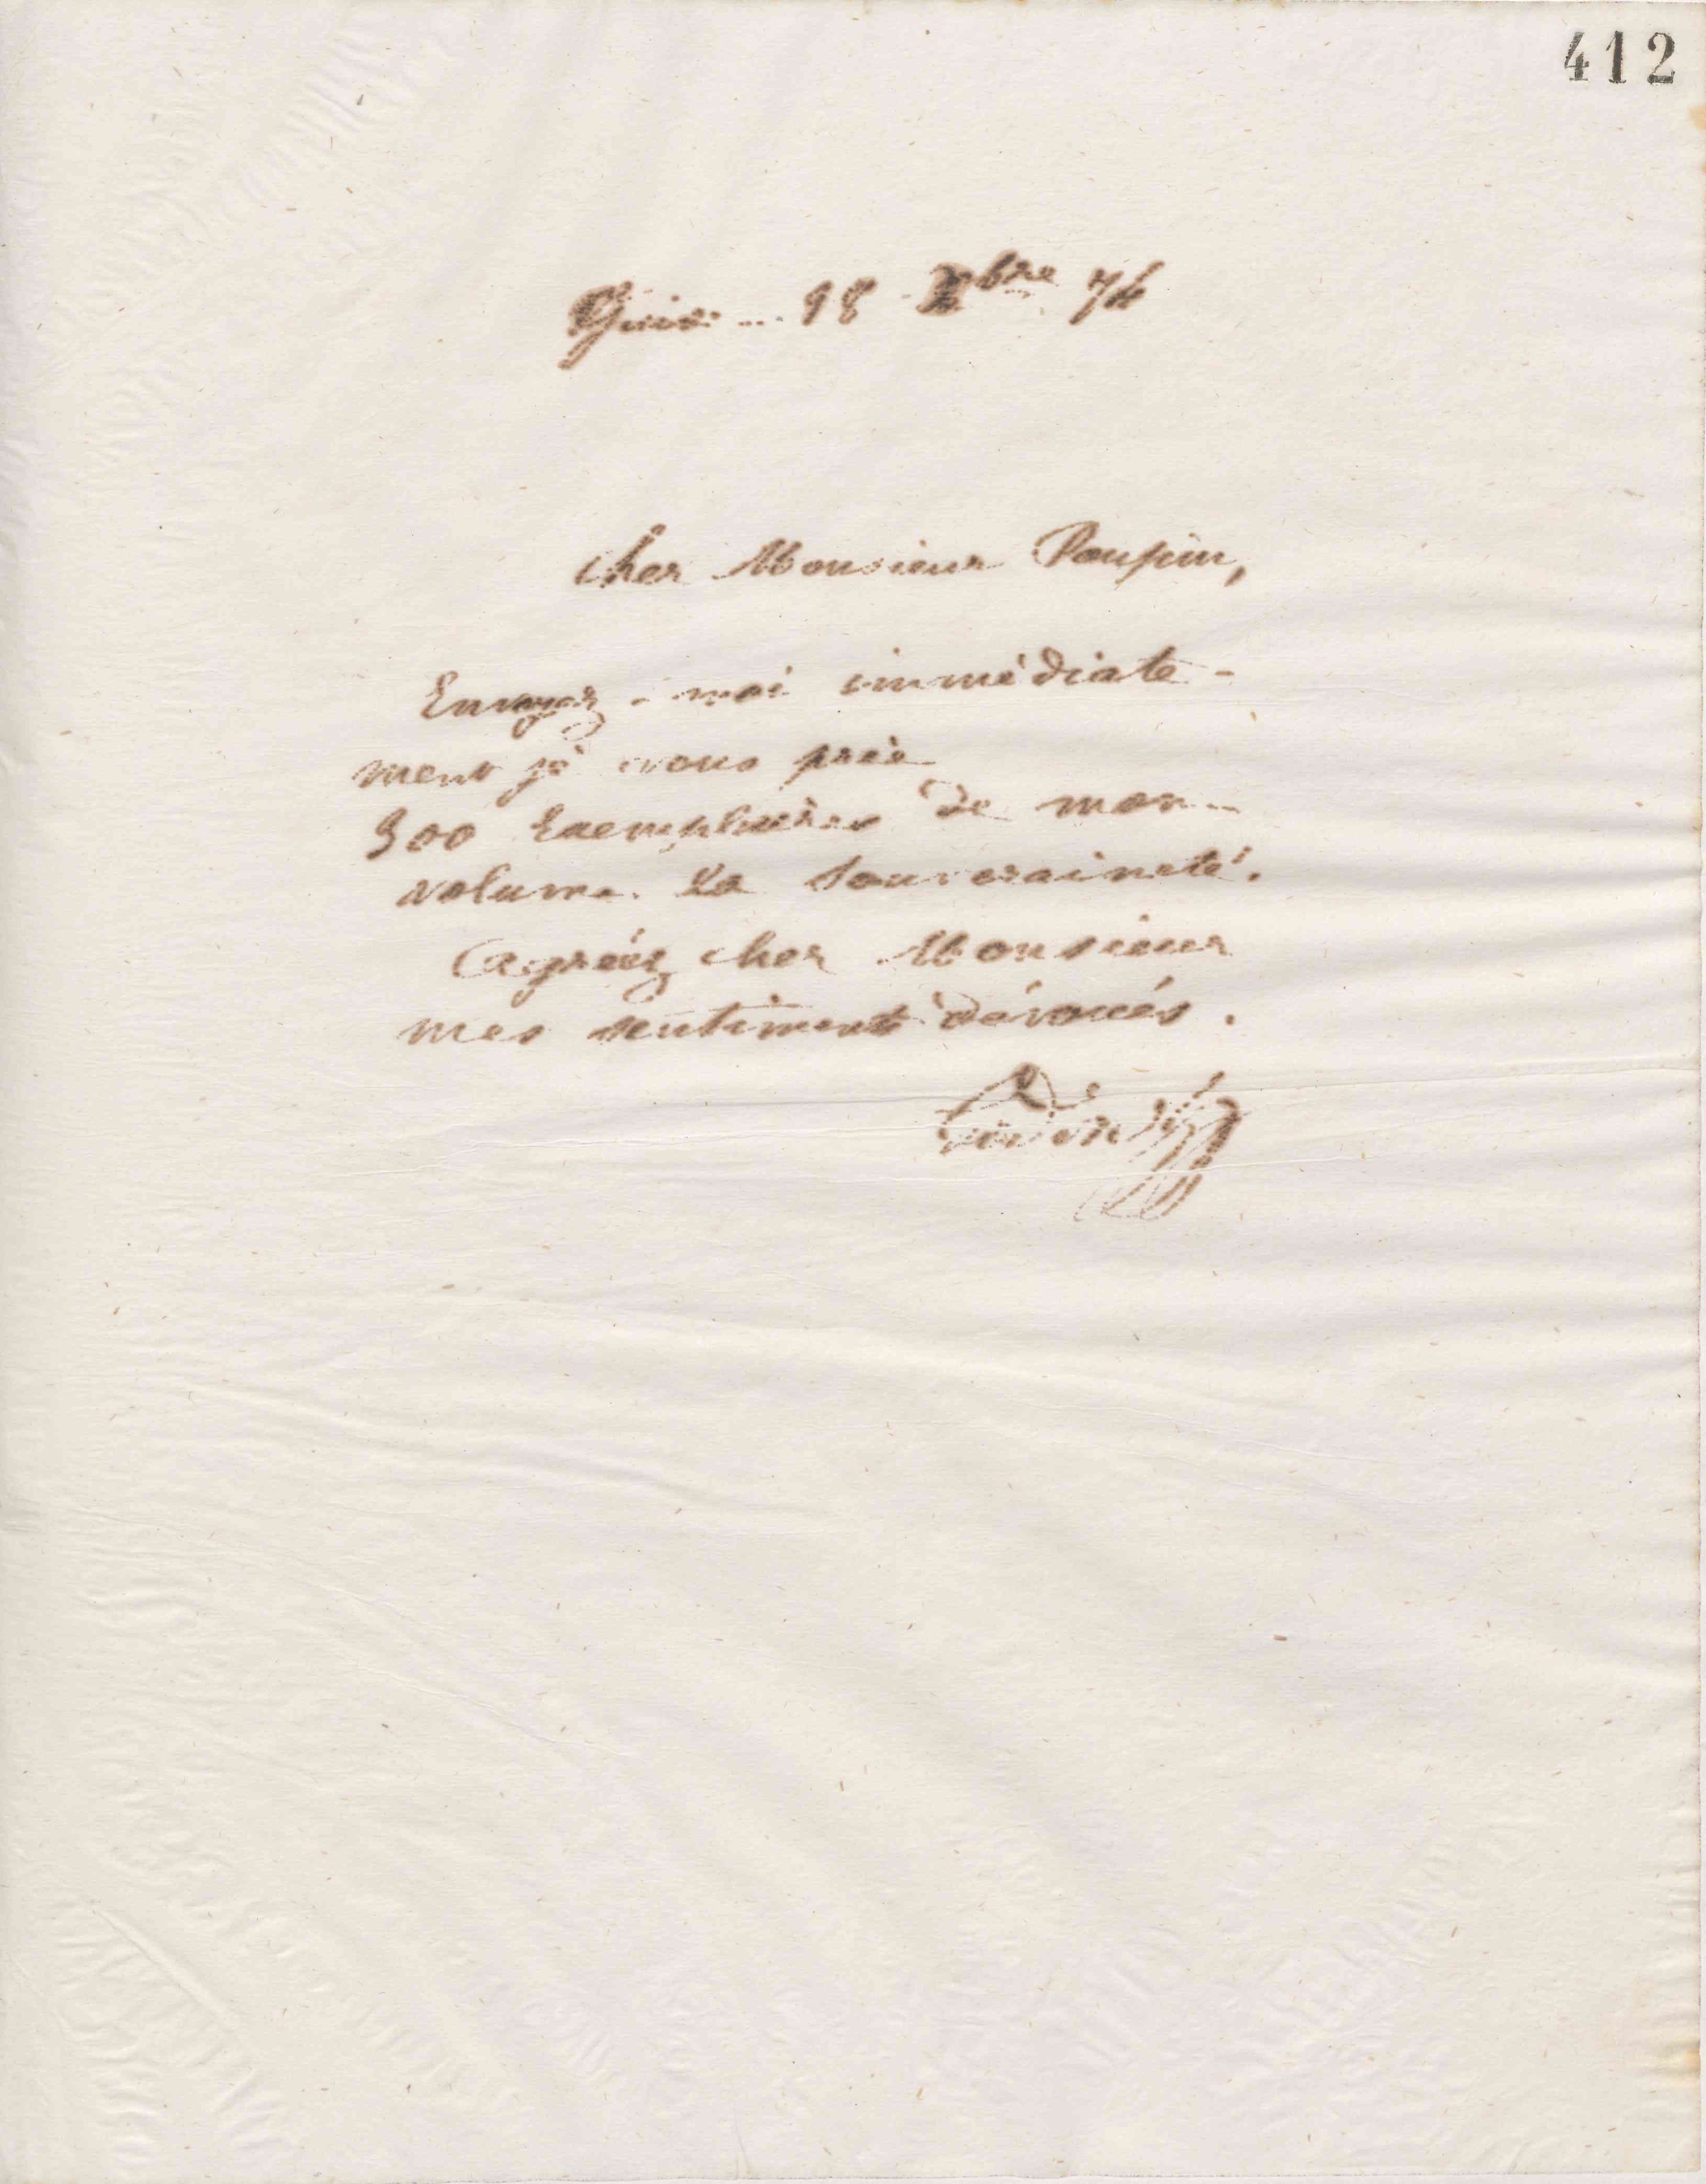 412
Guise 18 Xbre 74
Cher Monsieur Poupin,
Envoyez-moi immédiate-
ment je vous prie
300 Exemplaires de mon
volume. La Souveraineté.
Agréez cher Monsieur
mes sentiments dévoués.
Godin